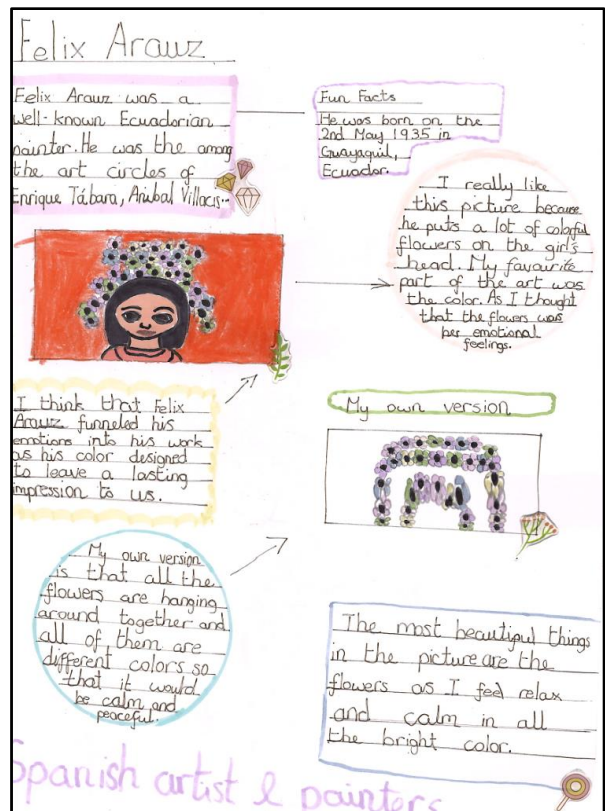 Felix Arauz
Felix Arauz was a
well-known Ecuadorian
painter. He was the among
the art circles of
Enrique Tábara, Aníbal Villacís...
Fun Facts
He was born on the
2nd May 1935 in
Guayaquil,
Ecuador.
I really like
this picture because
he puts a lot of colorful
flowers on the girl's
head. My favourite
part of the art was
the color. As I thought
that the flowers was
her emotional
feelings.
I think that Felix
Arauz funneled his
emotions into his work
as his color designed
to leave a lasting
impression to us.
My own version
My own version
is that all the
flowers are hanging
around together and
all of them are
different colors so
that it would
be calm and
peaceful.
The most beautiful things
in the picture are the
flowers as I feel relax
and calm in all
the bright color.
Spanish artist & painters